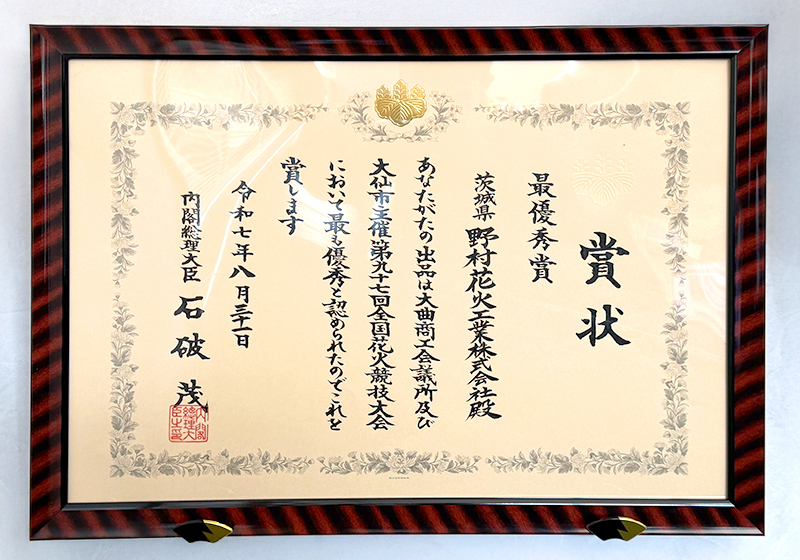 賞状
最優秀賞
茨城県 野村花火工業株式会社殿
あなたがたの出品は大曲商工会議所及び
大仙市主催第九十七回全国花火競技大会
において最も優秀と認められたのでこれを
賞します
令和七年八月三十一日
内閣総理大臣 石破茂
内閣総理大臣之印